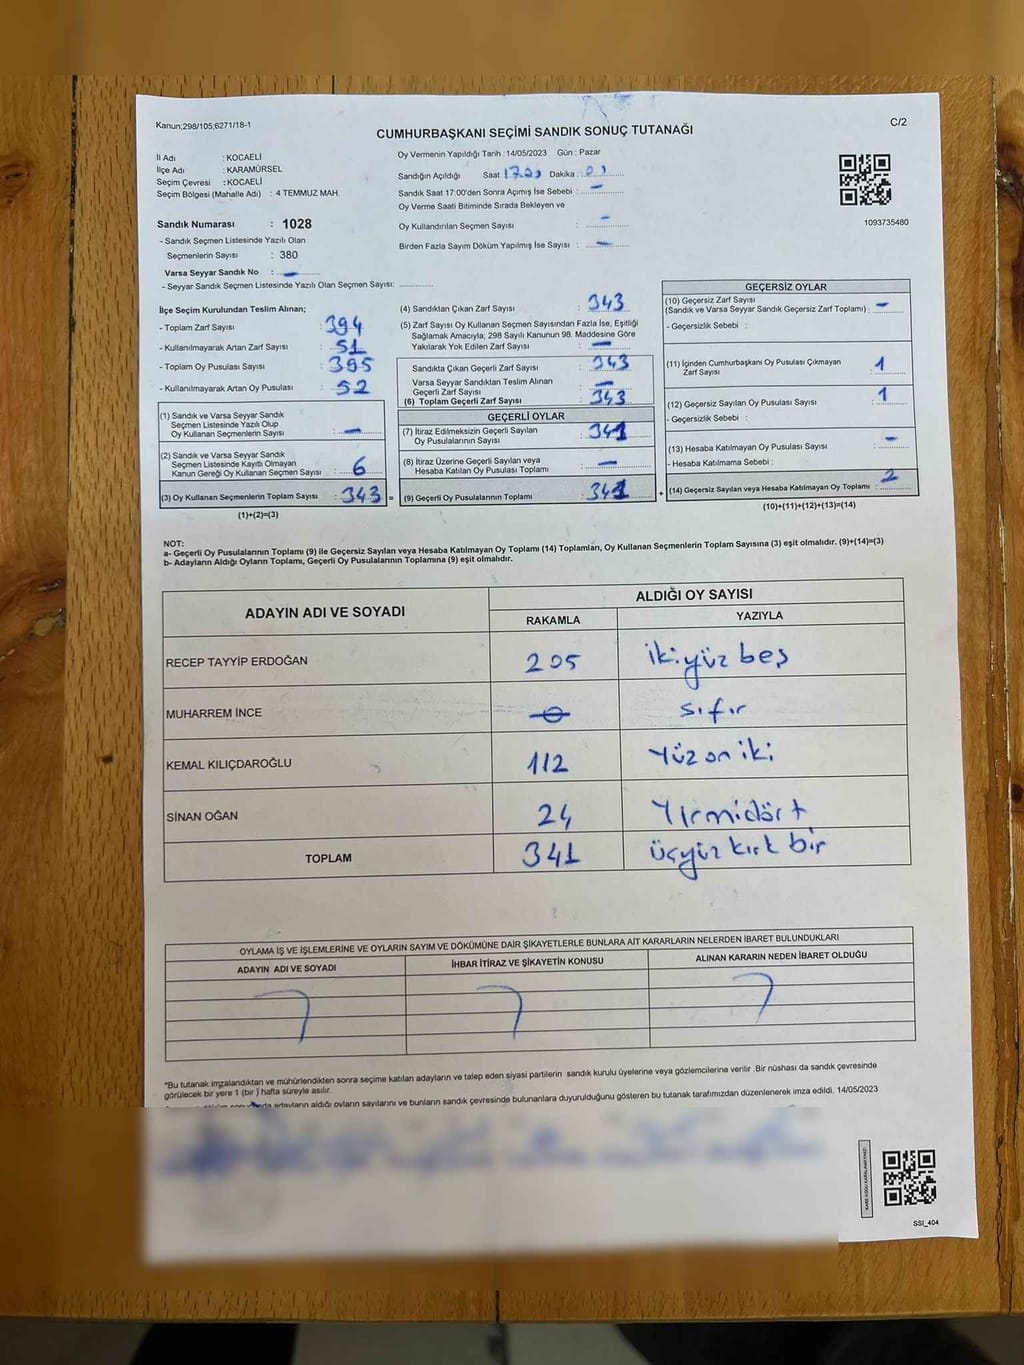 Kanun;298/105;6271/18-1
C/2
CUMHURBAŞKANI SEÇİMİ SANDIK SONUÇ TUTANAĞI
İl Adı : KOCAELİ
İlçe Adı : KARAMÜRSEL
Seçim Çevresi : KOCAELİ
Seçim Bölgesi (Mahalle Adı) : 4 TEMMUZ MAH.
Oy Vermenin Yapıldığı Tarih :14/05/2023 Gün : Pazar
Sandığın Açıldığı Saat 17.00 Dakika :
Sandık Saat 17:00'den Sonra Açımış İse Sebebi : –
Oy Verme Saati Bitiminde Sırada Bekleyen ve
Oy Kullandırılan Seçmen Sayısı : –
Birden Fazla Sayım Döküm Yapılmış İse Sayısı : –
1093735480
Sandık Numarası : 1028
- Sandık Seçmen Listesinde Yazılı Olan
Seçmenlerin Sayısı : 380
Varsa Seyyar Sandık No : –
- Seyyar Sandık Seçmen Listesinde Yazılı Olan Seçmen Sayısı:
İlçe Seçim Kurulundan Teslim Alınan;
- Toplam Zarf Sayısı : 394
- Kullanılmayarak Artan Zarf Sayısı : 51
- Toplam Oy Pusulası Sayısı : 395
- Kullanılmayarak Artan Oy Pusulası : 52
(1) Sandık ve Varsa Seyyar Sandık
Seçmen Listesinde Yazılı Olup
Oy Kullanan Seçmenlerin Sayısı : –
(2) Sandık ve Varsa Seyyar Sandık
Seçmen Listesinde Kayıtlı Olmayan
Kanun Gereği Oy Kullanan Seçmen Sayısı : 6
(3) Oy Kullanan Seçmenlerin Toplam Sayısı : 343 =
(1)+(2)=(3)
(4) Sandıktan Çıkan Zarf Sayısı : 343
(5) Zarf Sayısı Oy Kullanan Seçmen Sayısından Fazla İse, Eşitliği
Sağlamak Amacıyla; 298 Sayılı Kanunun 98. Maddesine Göre
Yakılarak Yok Edilen Zarf Sayısı : –
Sandıkta Çıkan Geçerli Zarf Sayısı : 343
Varsa Seyyar Sandıktan Teslim Alınan
Geçerli Zarf Sayısı : –
(6) Toplam Geçerli Zarf Sayısı : 343
GEÇERLİ OYLAR
(7) İtiraz Edilmeksizin Geçerli Sayılan
Oy Pusulalarının Sayısı : 341
(8) İtiraz Üzerine Geçerli Sayılan veya
Hesaba Katılan Oy Pusulası Toplamı : –
(9) Geçerli Oy Pusulalarının Toplamı : 341 +
GEÇERSİZ OYLAR
(10) Geçersiz Zarf Sayısı
(Sandık ve Varsa Seyyar Sandık Geçersiz Zarf Toplamı) : –
- Geçersizlik Sebebi :
(11) İçinden Cumhurbaşkanı Oy Pusulası Çıkmayan
Zarf Sayısı : 1
(12) Geçersiz Sayılan Oy Pusulası Sayısı : 1
- Geçersizlik Sebebi :
(13) Hesaba Katılmayan Oy Pusulası Sayısı : –
- Hesaba Katılmama Sebebi :
(14) Geçersiz Sayılan veya Hesaba Katılmayan Oy Toplamı : 2
(10)+(11)+(12)+(13)=(14)
NOT:
a- Geçerli Oy Pusulalarının Toplamı (9) ile Geçersiz Sayılan veya Hesaba Katılmayan Oy Toplamı (14) Toplamları, Oy Kullanan Seçmenlerin Toplam Sayısına (3) eşit olmalıdır. (9)+(14)=(3)
b- Adayların Aldığı Oyların Toplamı, Geçerli Oy Pusulalarının Toplamına (9) eşit olmalıdır.
ADAYIN ADI VE SOYADI
ALDIĞI OY SAYISI
RAKAMLA YAZIYLA
RECEP TAYYİP ERDOĞAN 205 ikiyüz beş
MUHARREM İNCE 0 sıfır
KEMAL KILIÇDAROĞLU 112 Yüz on iki
SİNAN OĞAN 24 Yirmidört
TOPLAM 341 üçyüz kırk bir
OYLAMA İŞ VE İŞLEMLERİNE VE OYLARIN SAYIM VE DÖKÜMÜNE DAİR ŞİKAYETLERLE BUNLARA AİT KARARLARIN NELERDEN İBARET BULUNDUKLARI
ADAYIN ADI VE SOYADI İHBAR İTİRAZ VE ŞİKAYETİN KONUSU ALINAN KARARIN NEDEN İBARET OLDUĞU
*Bu tutanak imzalandıktan ve mühürlendikten sonra seçime katılan adayların ve talep eden siyasi partilerin sandık kurulu üyelerine veya gözlemcilerine verilir .Bir nüshası da sandık çevresinde
görülecek bir yere 1 (bir ) hafta süreyle asılır.
adayların aldığı oyların sayılarını ve bunların sandık çevresinde bulunanlara duyurulduğunu gösteren bu tutanak tarafımızdan düzenlenerek imza edildi. 14/05/2023
SSI_404